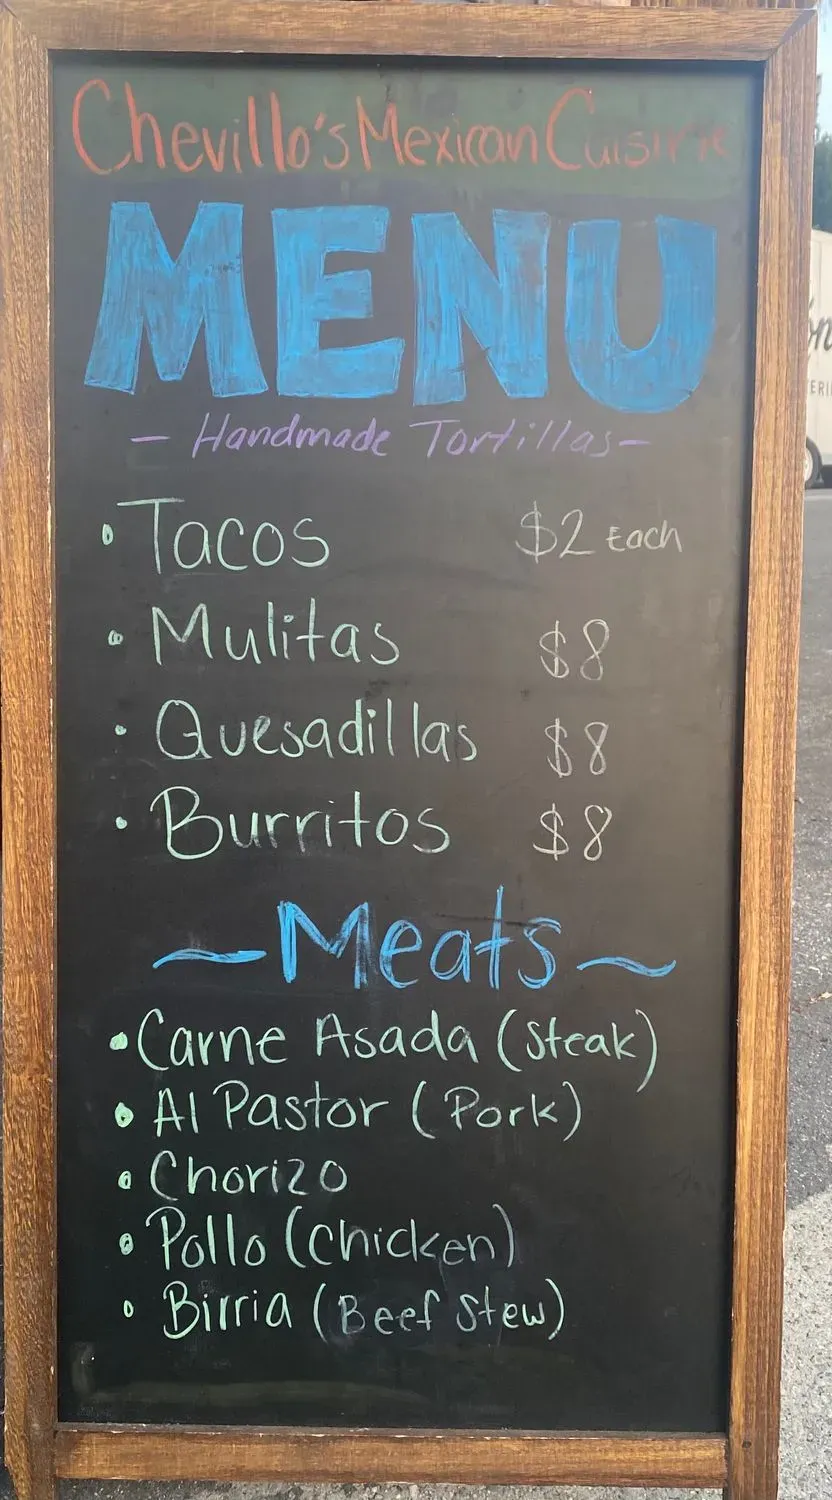 Chevillo's Mexican Cuisine
MENU
- Handmade Tortillas -
• Tacos $2 Each
• Mulitas $8
• Quesadillas $8
• Burritos $8
~ Meats ~
• Carne Asada (Steak)
• Al Pastor (Pork)
• Chorizo
• Pollo (Chicken)
• Birria (Beef Stew)